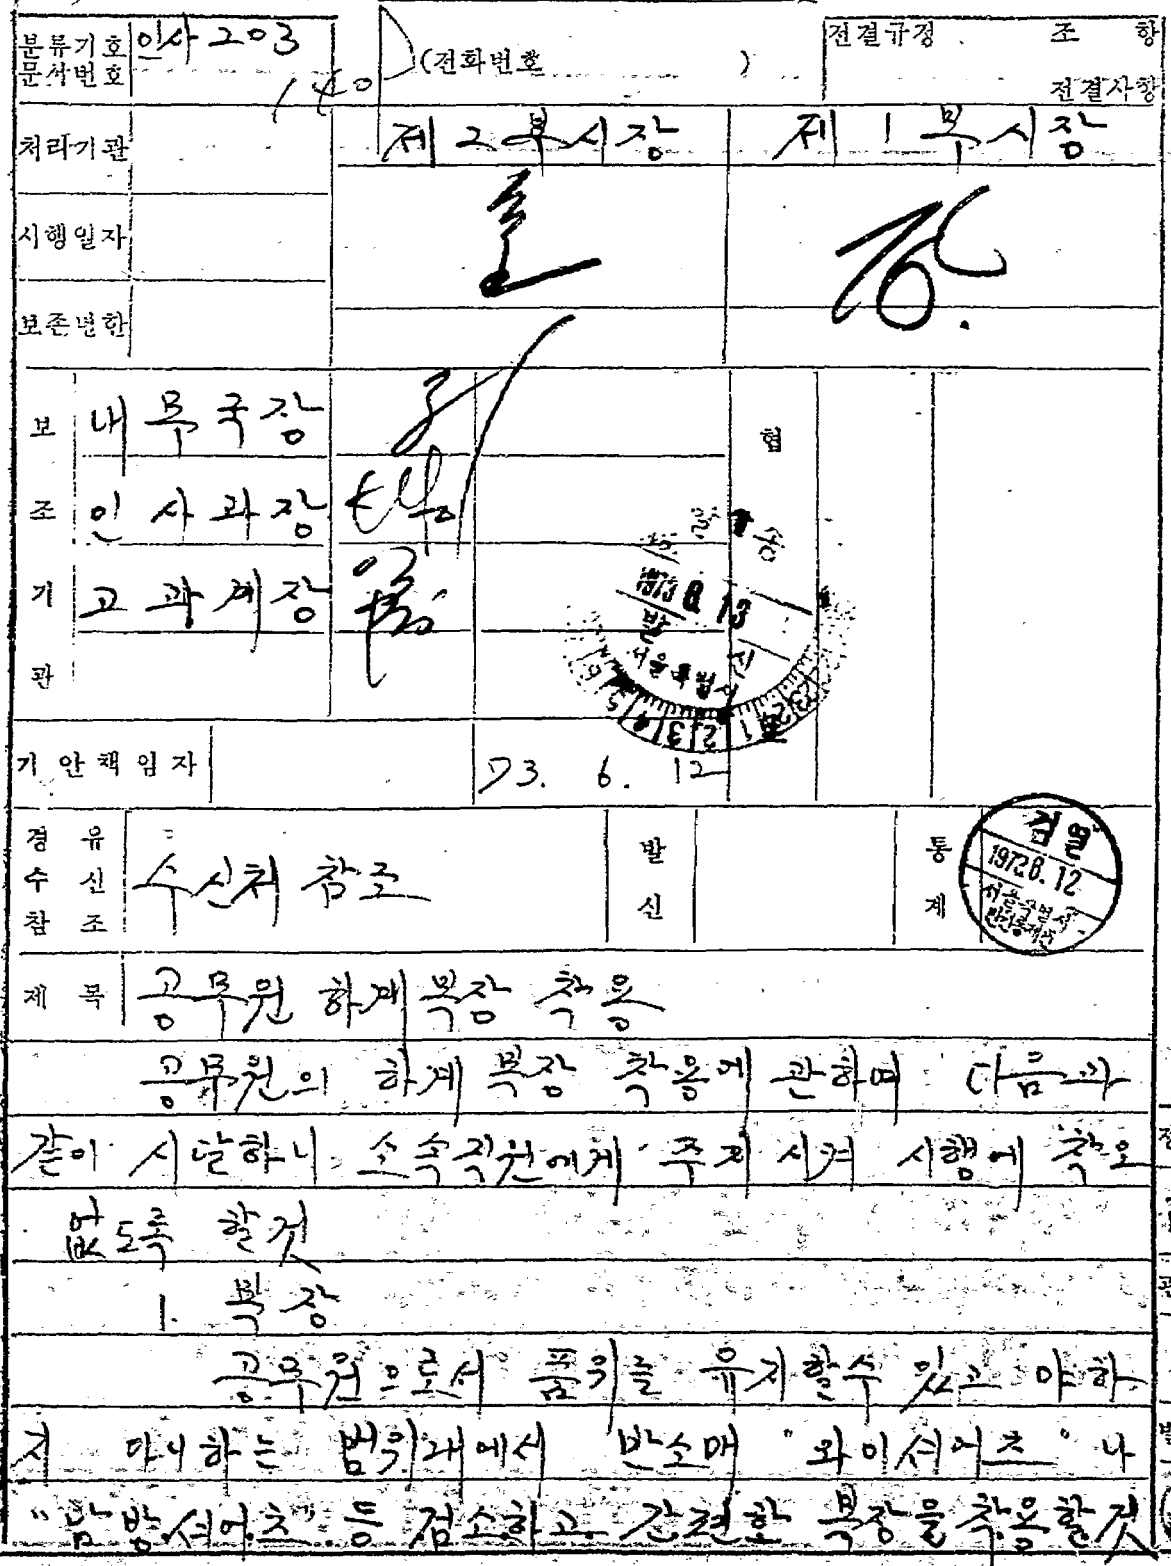 분류기호 인사 203
문서번호 140
(전화번호 )
전결규정 조 항
전결사항
처리기관
제 2 부시장 제 1 부시장
시행일자
보존년한
보조기관
내무국장
인사과장
고과계장
협
1973. 6. 13
발 신
서울특별시
기안책임자
73. 6. 12
경유
수신 수신처 참조
참조
발신
통제
검열
1973. 6. 12
서울특별시
제목 공무원 하계복장 착용
공무원의 하계 복장 착용에 관하여 다음과
같이 시달하니 소속직원에게 주지 시켜 시행에 착오
없도록 할것
1. 복장
공무원으로서 품위를 유지할수 있고 야하
지 아니하는 범위내에서 반소매 "와이셔어츠" 나
"남방셔어츠" 등 검소하고 간편한 복장을 착용할것